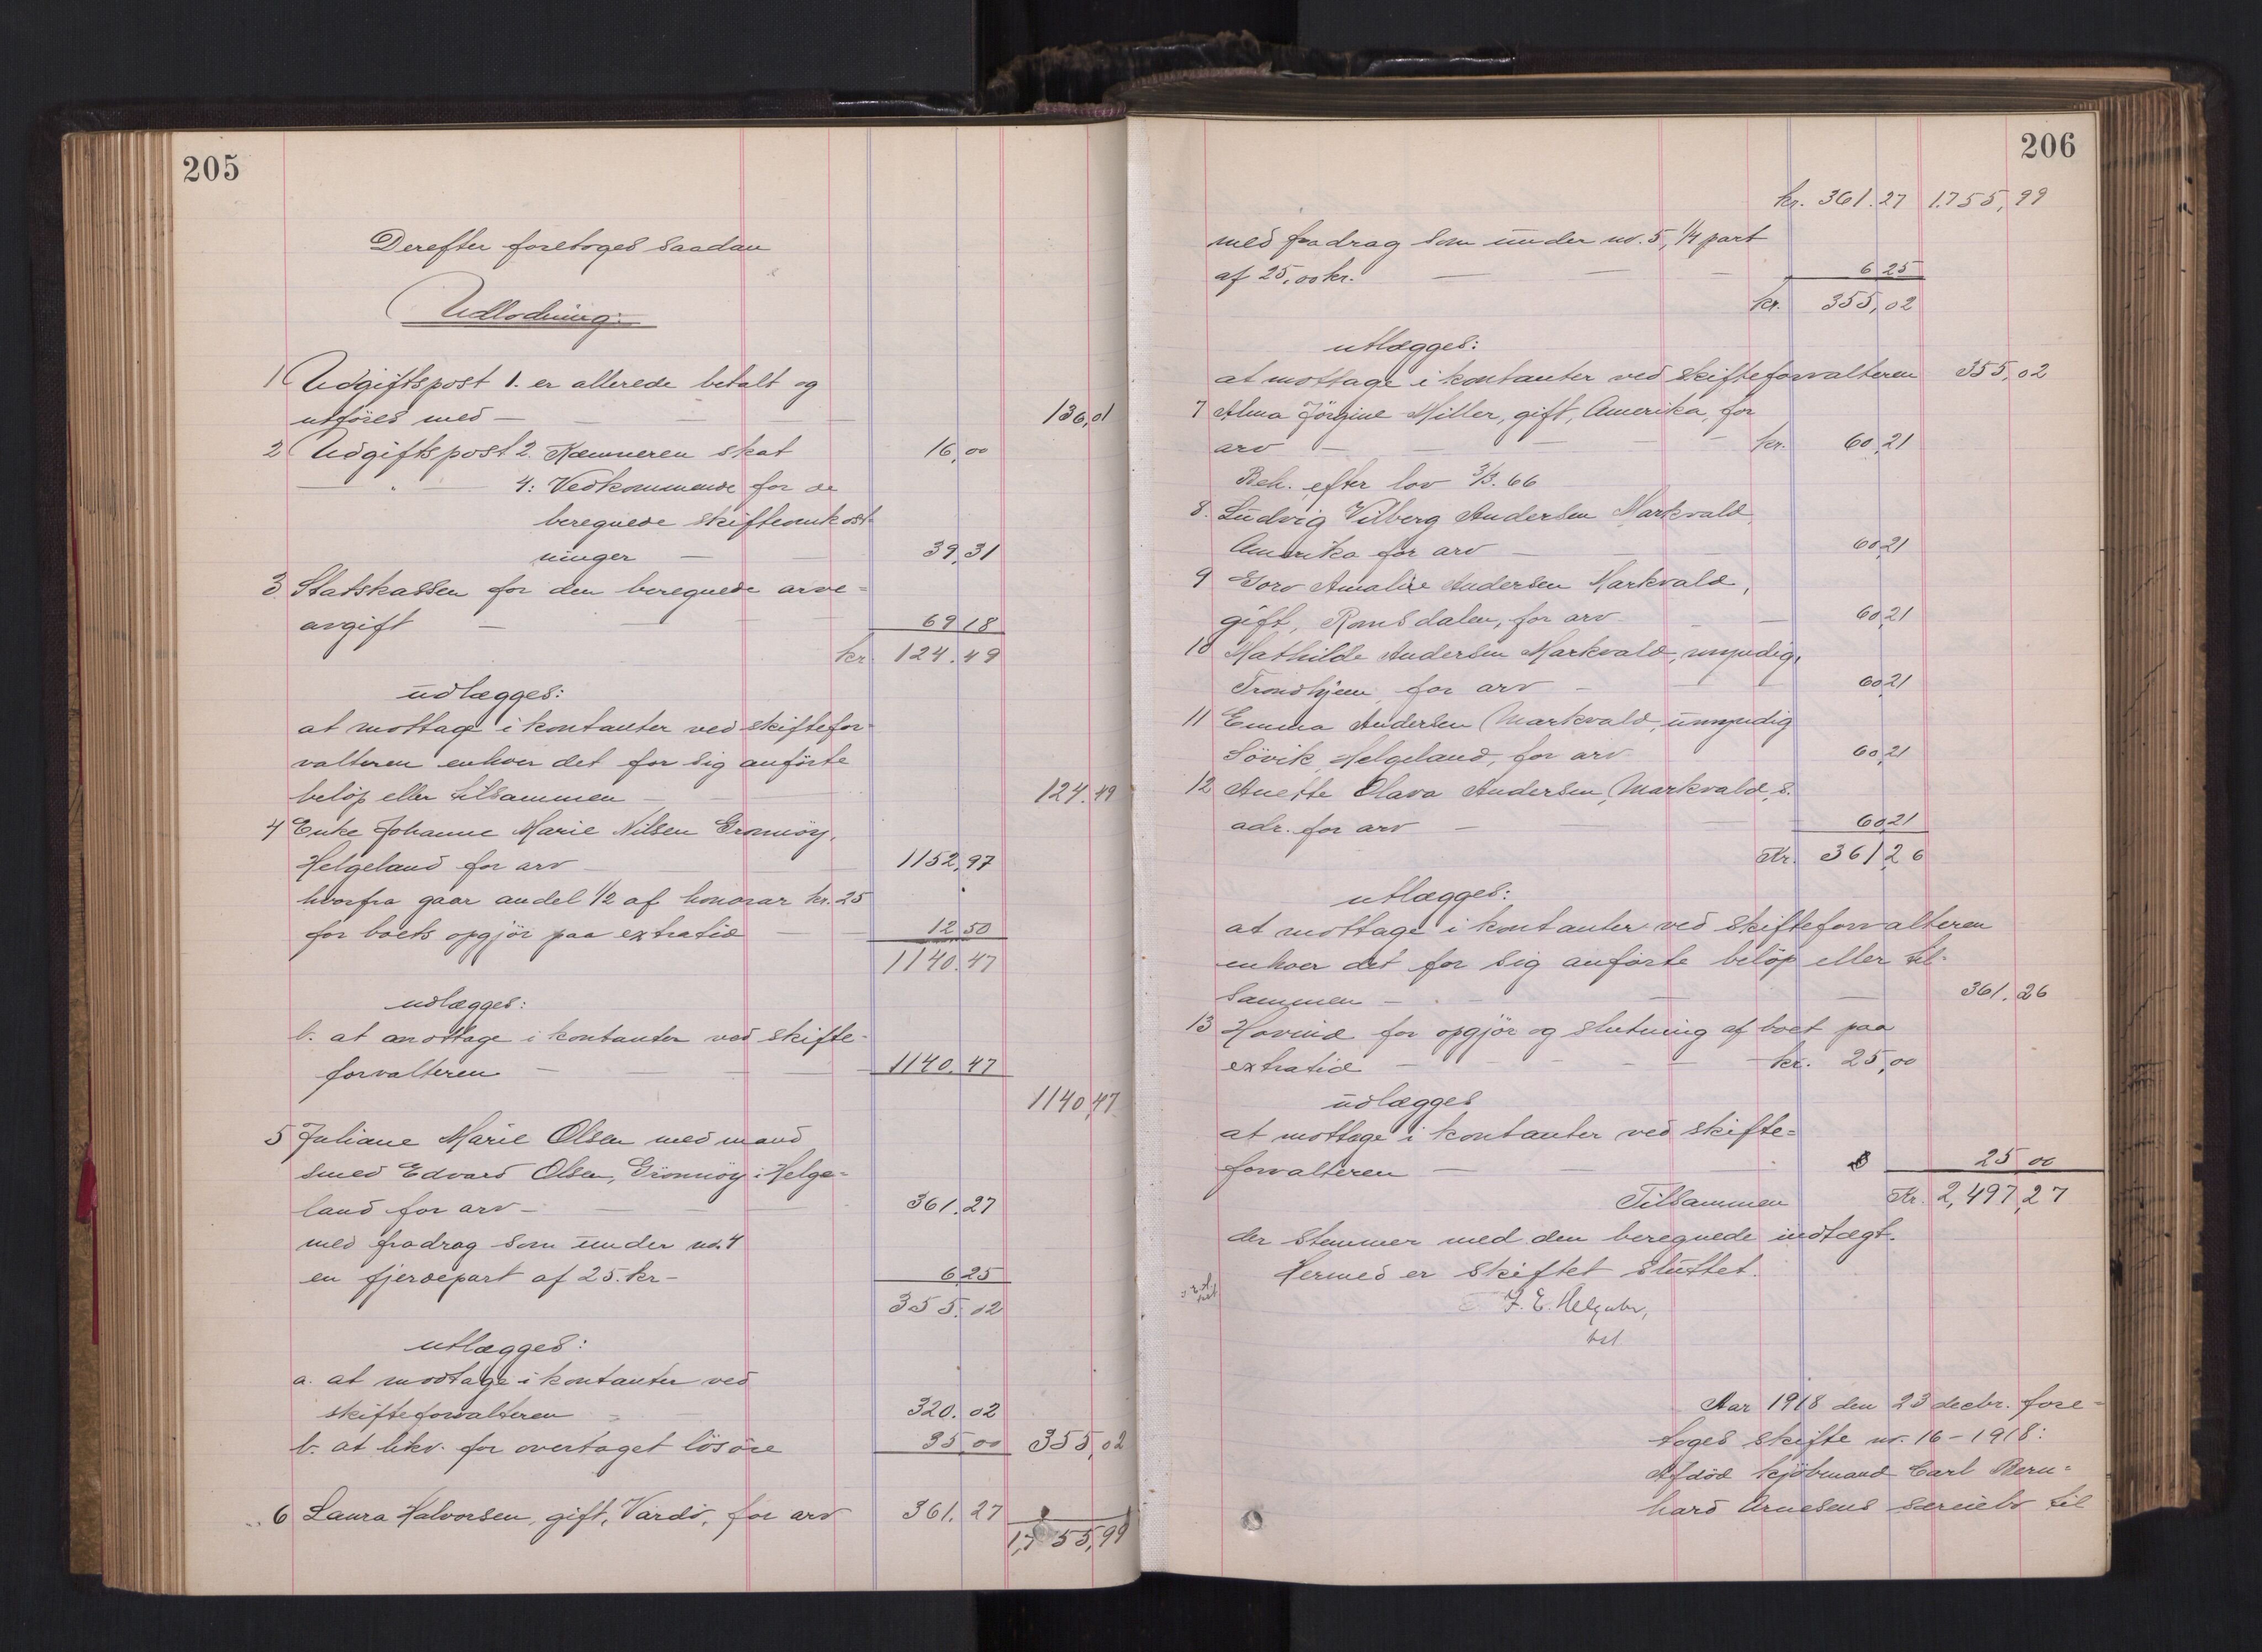 205
Derefter foretoges saadan
Udlodning:
1 Udgiftspost 1. er allerede betalt og
utföres med — 136,01
2 Udgiftspost 2. Kæmneren skat 16,00
— " — 4: Vedkommende for de
beregnede skifteomkost-
ninger — 39,31
3. Statskassen for den beregnede arve-
avgift — 69,18
kr. 124.49
udlægges:
at mottage i kontanter ved skiftefor-
valteren enhver det for sig anförte
belöp eller tilsammen — 124.49
4 Enke Johanne Marie Nilsen Grönnöy,
Helgeland for arv — 1152,97
hvorfra gaar andel 1/2 af honorar kr. 25
for boets opgjör paa extratid — 12,50
1140.47
udlægges:
b. at mottage i kontanter ved skifte-
forvalteren — 1140.47
1140,47
5 Juliane Marie Olsen med mand
smed Edvard Olsen, Grönnöy i Helge-
land for arv — 361.27
med fradrag som under no. 4
en fjerdepart af 25. kr — 6,25
355.02
utlægges:
a. at modtage i kontanter ved
skifteforvalteren 320.02
b. at likv. for overtaget lösöre 35,00 355,02
6 Laura Halvorsen, gift, Vardö, for arv 361.27
1,755,99
206
kr. 361.27 1.755,99
med fradrag som under no. 5, 1/4 part
af 25,00 kr. — 6 25
kr. 355,02
utlægges:
at mottage i kontanter ved skifteforvalteren 355,02
7 Alma Jörgine Miller, gift, Amerika, for
arv — kr. 60,21
Beh. efter lov 3/3. 66
8. Ludvig Vilberg Andersen Markvald,
Amerika for arv — 60,21
9 Amalie Andersen Markvald,
gift, Romsdalen, for arv — 60,21
10 Mathilde Andersen Markvald, umyndig,
Trondhjem for arv — 60,21
11 Emma Andersen Markvald, umyndig
Sövik, Helgeland, for arv 60,21
12 Anette Olava Andersen Markvald, s.
adr. for arv — 60,21
Kr. 361,26
utlægges:
at mottage i kontanter ved skifteforvalteren
enhver det for sig anförte belöp eller til-
sammen — 361.26
13 Hovind for opgjör og slutning af boet paa
extratid — kr. 25,00
udlægges
at mottage i kontanter ved skifte-
forvalteren — 25 00
Tilsammen Kr. 2,497,27
der stemmer med den beregnede indtægt.
Hermed er skiftet sluttet.
Aar 1918 den 23 decbr. fore-
toges skifte no. 16 - 1918:
Afdöd kjöbmand Carl Bern-
hard Arnesens særeiebo til